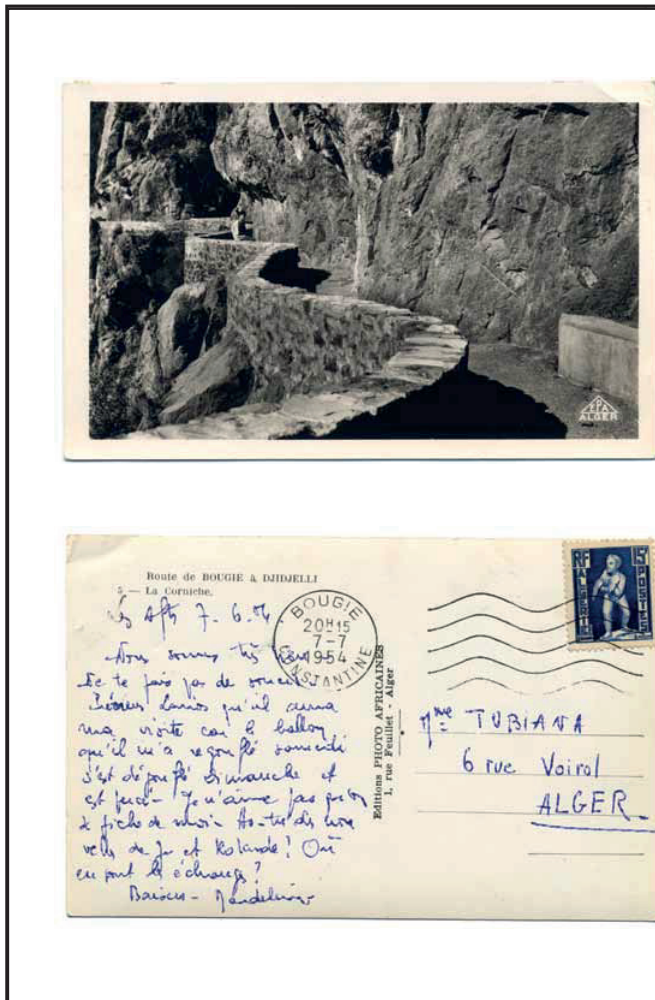 EPA
ALGER
Route de BOUGIE à DJIDJELLI
5 — La Corniche.
7-6-54
BOUGIE
20H15
7-7
1954
CONSTANTINE
RF
15F
POSTES
ALGERIE
Nous sommes très
te fais pas de souci
qu'il aura
ma visite car le ballon
qu'il m'a regonflé samedi
s'est dégonflé dimanche et
est percé - Je n'aime pas qu'on
se fiche de moi - As-tu des nou
velles de Jo et Rolande ! Où
en sont les échanges ?
Baisers -
Editions PHOTO AFRICAINES
1, rue Feuillet - Alger
Mme TUBIANA
6 rue Voirol
ALGER